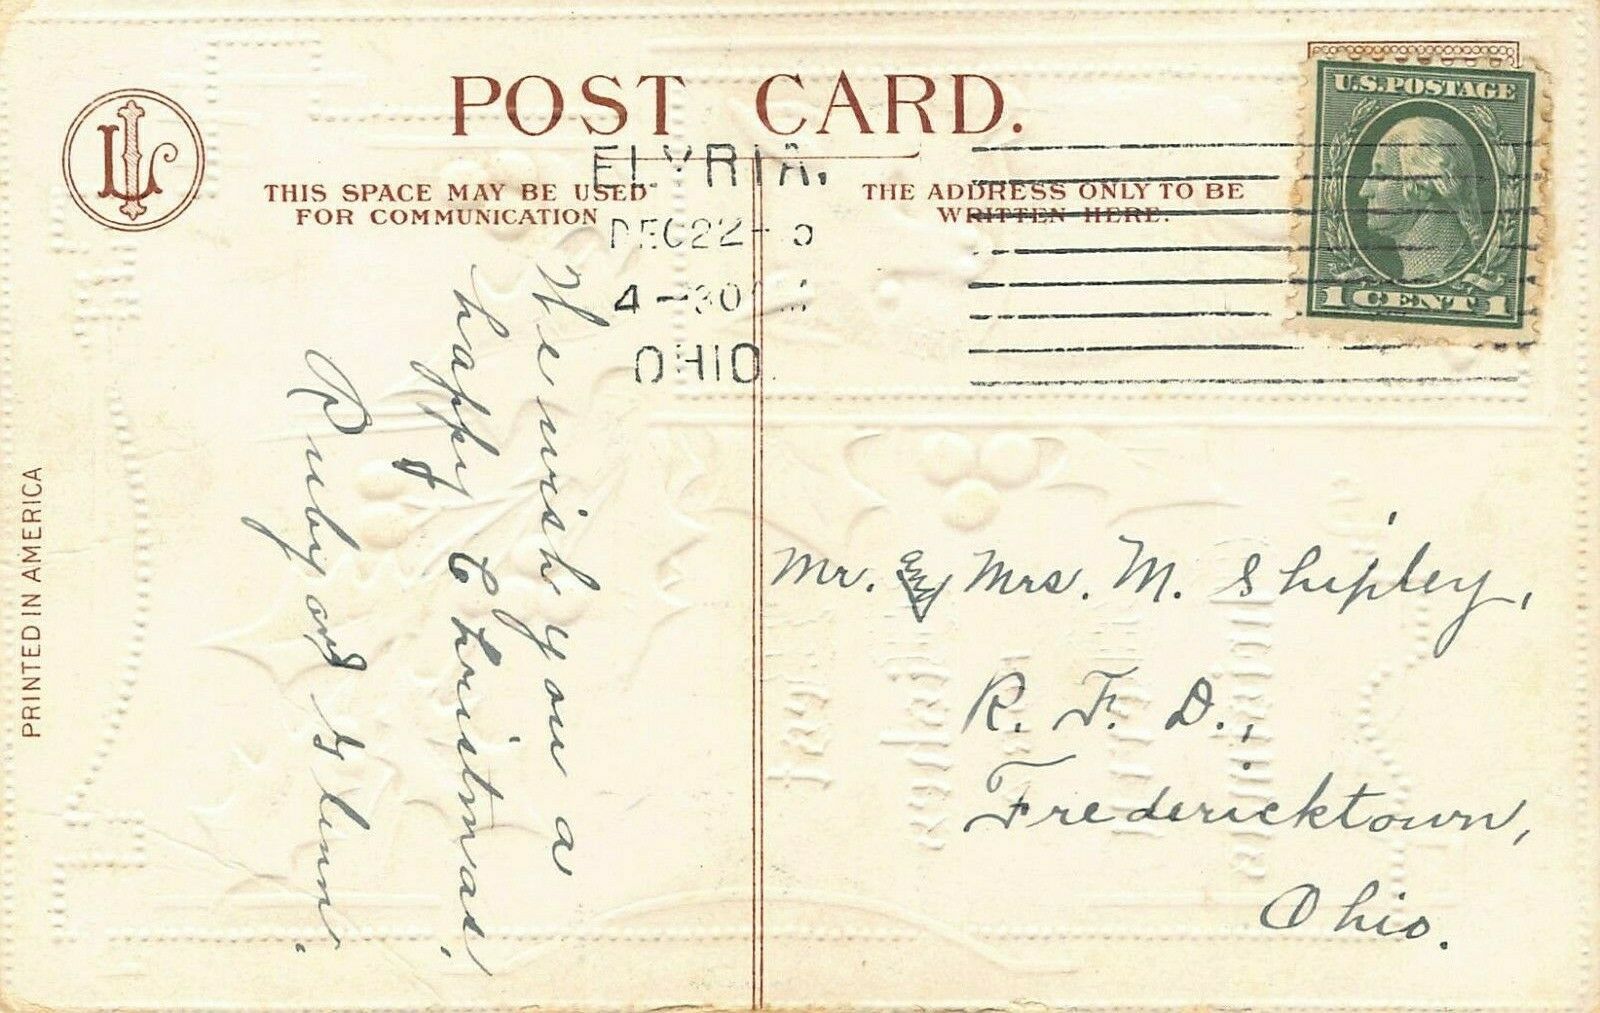 POST CARD.
THIS SPACE MAY BE USED
FOR COMMUNICATION
THE ADDRESS ONLY TO BE
WRITTEN HERE.
ELYRIA,
DEC 22
4-30
OHIO.
U.S. POSTAGE
1 CENT 1
PRINTED IN AMERICA
We wish you a
happy Christmas.
Ruby and Glenn.
Mr. & Mrs. M. Shipley,
R. F. D.,
Fredericktown,
Ohio.